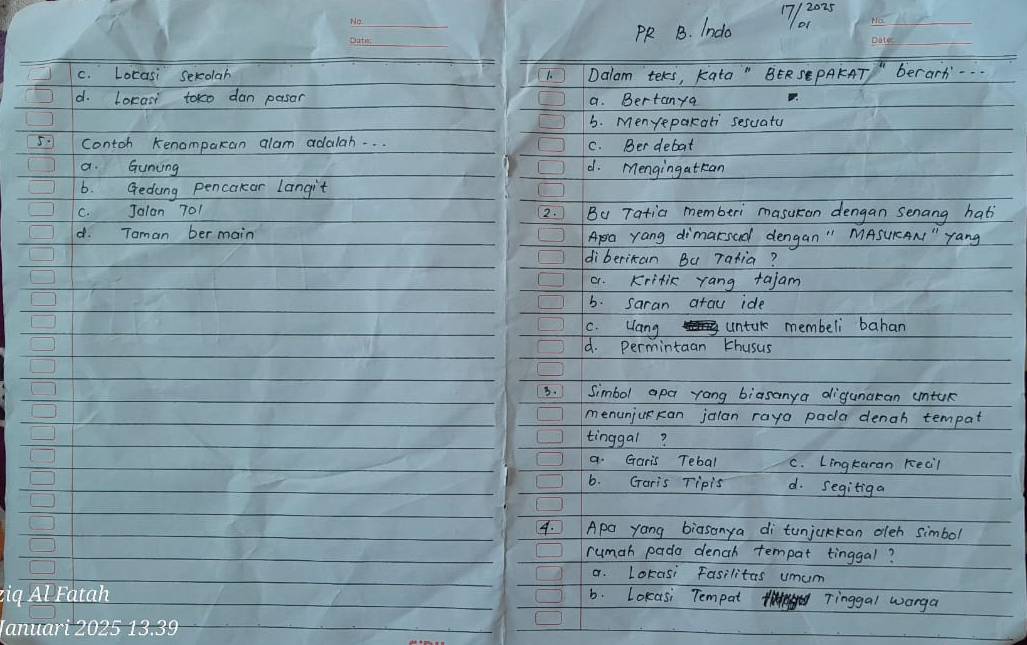 No.
Date:
c. Lokasi sekolah
d. Lokasi toko dan pasar
5. Contoh Kenampakan alam adalah ...
a. Gunung
b. Gedung pencakar Langit
c. Jalan Tol
d. Taman bermain
ziq Al Fatah
Januari 2025 13.39
PR B. Indo
17/01 2025
No.
Date:
1. Dalam teks, Kata " BERSEPAKAT " berarti ...
a. Bertanya
b. Menyepakati sesuatu
c. Berdebat
d. Mengingatkan
2. Bu Tatia memberi masukan dengan senang hati
Apa yang dimaksud dengan " MASUKAN " yang
diberikan Bu Tatia ?
a. Kritik yang tajam
b. Saran atau ide
c. Uang untuk membeli bahan
d. Permintaan Khusus
3. Simbol apa yang biasanya digunakan untuk
menunjukkan jalan raya pada denah tempat
tinggal ?
a. Garis Tebal c. Lingkaran Kecil
b. Garis Tipis d. Segitiga
4. Apa yang biasanya di tunjukkan oleh simbol
rumah pada denah tempat tinggal ?
a. Lokasi Fasilitas umum
b. Lokasi Tempat Tinggal warga